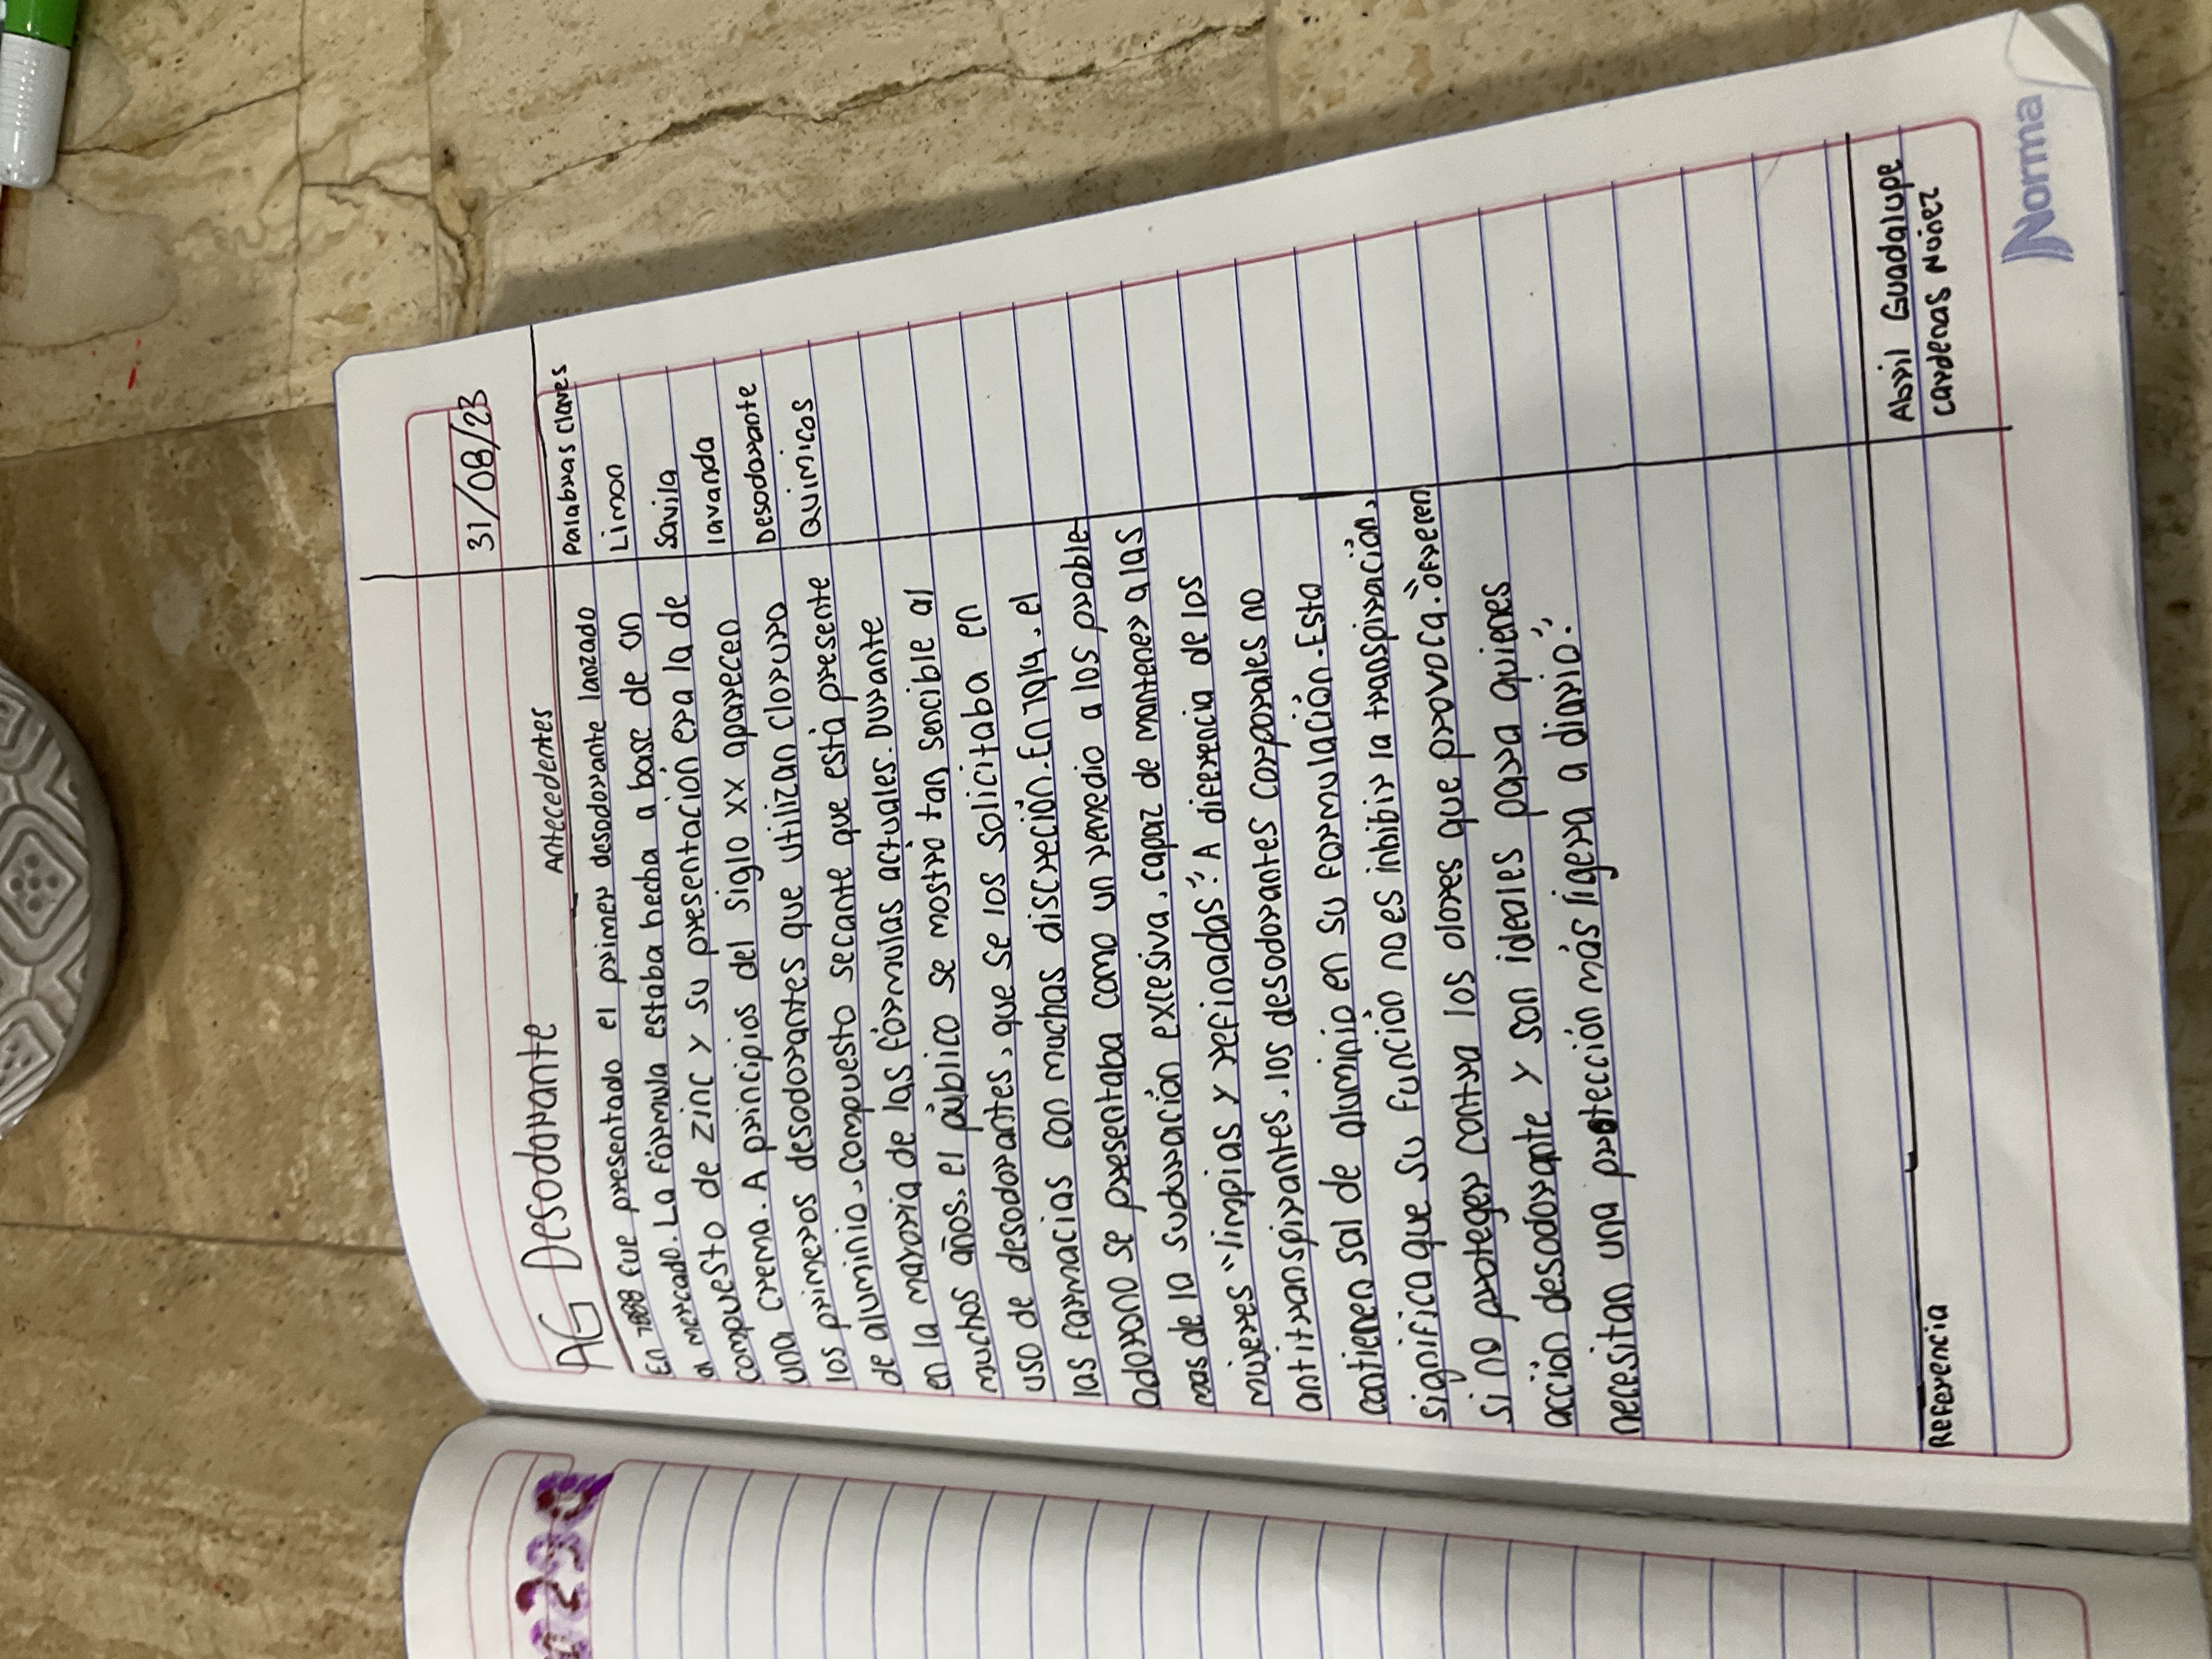 31/08/23
AG Desodorante Antecedentes
Palabras Claves
Limon
Savila
lavanda
Desodorante
Quimicos
En 1888 fue presentado el primer desodorante lanzado
al mercado. La fórmula estaba hecha a base de un
compuesto de zinc y su presentación era la de
una crema. A principios del siglo xx aparecen
los primeros desodorantes que utilizan cloruro
de aluminio, compuesto secante que está presente
en la mayoria de las fórmulas actuales. Durante
muchos años, el público se mostró tan sencible al
uso de desodorantes, que se los solicitaba en
las farmacias con muchas discreción. En 1914, el
odorono se presentaba como un remedio a los proble-
mas de la suduración excesiva, capaz de mantener a las
mujeres "limpias y refinadas". A diferencia de los
antitranspirantes, los desodorantes corporales no
contienen sal de aluminio en su formulación. Esta
significa que su función no es inhibir la transpiración,
si no proteger contra los olores que provoca. "ofrecen
acción desodorante y son ideales para quienes
necesitan una protección más ligera a diario".
Referencia
Abril Guadalupe
Cardenas Nuñez
Norma